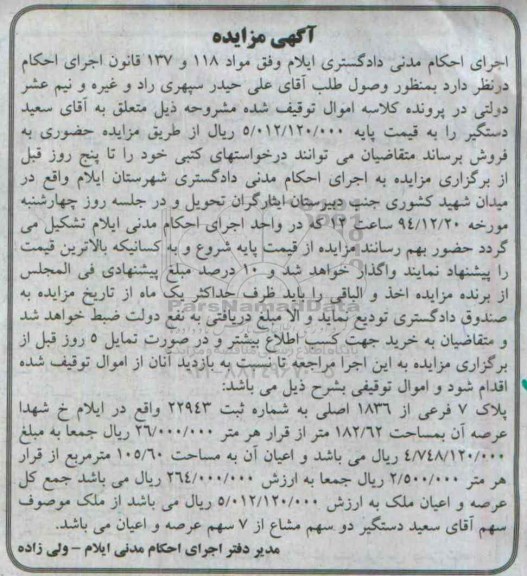 آگهی مزایده
اجرای احکام مدنی دادگستری ایلام وفق مواد ۱۱۸ و ۱۳۷ قانون اجرای احکام
درنظر دارد بمنظور وصول طلب آقای علی حیدر سپهری راد و غیره و نیم عشر
دولتی در پرونده کلاسه اموال توقیف شده مشروحه ذیل متعلق به آقای سعید
دستگیر را به قیمت پایه ۵/۰۱۲/۱۲۰/۰۰۰ ریال از طریق مزایده حضوری به
فروش برساند متقاضیان می توانند درخواستهای کتبی خود را تا پنج روز قبل
از برگزاری مزایده به اجرای احکام مدنی دادگستری شهرستان ایلام واقع در
میدان شهید کشوری جنب دبیرستان ایثارگران تحویل و در جلسه روز چهارشنبه
مورخه ۹۴/۱۲/۲۰ ساعت ۱۲ که در واحد اجرای احکام مدنی ایلام تشکیل می
گردد حضور بهم رسانند مزایده از قیمت پایه شروع و به کسانیکه بالاترین قیمت
را پیشنهاد نمایند واگذار خواهد شد و ۱۰ درصد مبلغ پیشنهادی فی المجلس
از برنده مزایده اخذ و الباقی را باید ظرف حداکثر یک ماه از تاریخ مزایده به
صندوق دادگستری تودیع نماید و الا مبلغ دریافتی به نفع دولت ضبط خواهد شد
و متقاضیان به خرید جهت کسب اطلاع بیشتر و در صورت تمایل ۵ روز قبل از
برگزاری مزایده به این اجرا مراجعه تا نسبت به بازدید آنان از اموال توقیف شده
اقدام شود و اموال توقیفی بشرح ذیل می باشد:
پلاک ۷ فرعی از ۱۸۳۶ اصلی به شماره ثبت ۲۲۹۴۳ واقع در ایلام خ شهدا
عرصه آن بمساحت ۱۸۲/۶۲ متر از قرار هر متر ۲۶/۰۰۰/۰۰۰ ریال جمعا به مبلغ
۴/۷۴۸/۱۲۰/۰۰۰ ریال می باشد و اعیان آن به مساحت ۱۰۵/۶۰ مترمربع از قرار
هر متر ۲/۵۰۰/۰۰۰ ریال جمعا به ارزش ۲۶۴/۰۰۰/۰۰۰ ریال می باشد جمع کل
عرصه و اعیان ملک به ارزش ۵/۰۱۲/۱۲۰/۰۰۰ ریال می باشد از ملک موصوف
سهم آقای سعید دستگیر دو سهم مشاع از ۷ سهم عرصه و اعیان می باشد.
مدیر دفتر اجرای احکام مدنی ایلام - ولی زاده